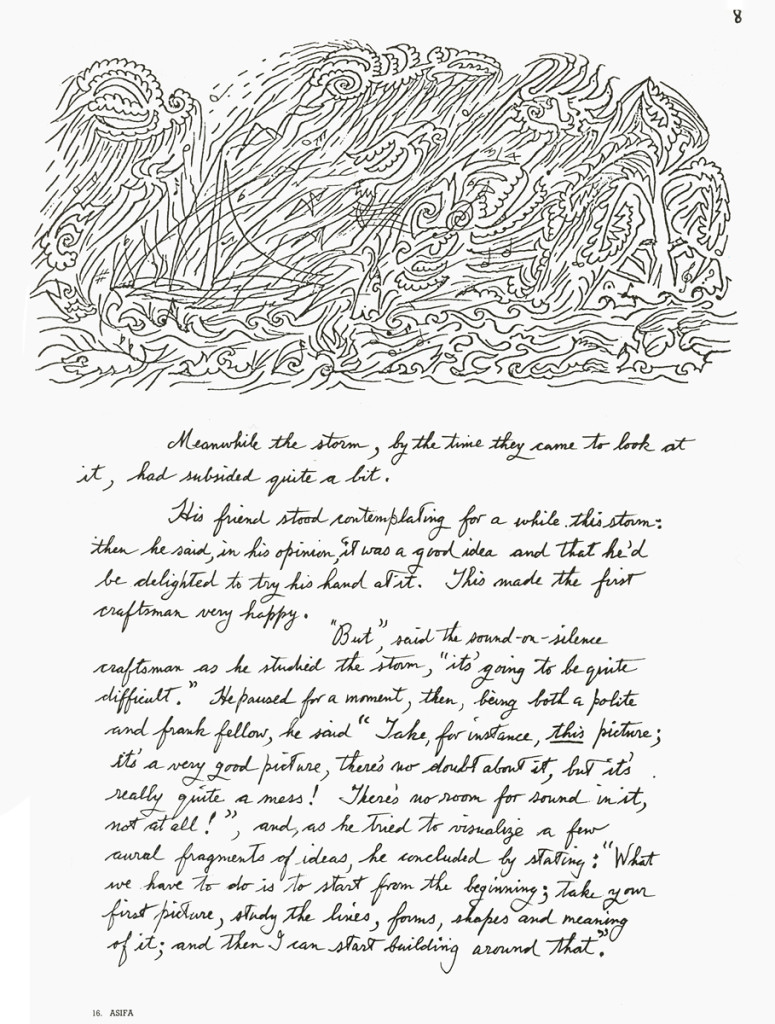 8
Meanwhile the storm, by the time they came to look at
it, had subsided quite a bit.
His friend stood contemplating for a while this storm:
then he said, in his opinion, it was a good idea and that he'd
be delighted to try his hand at it. This made the first
craftsman very happy.
"But", said the sound-on-silence
craftsman as he studied the storm, "it's going to be quite
difficult." He paused for a moment, then, being both a polite
and frank fellow, he said "Take, for instance, this picture;
it's a very good picture, there's no doubt about it, but it's
really quite a mess! There's no room for sound in it,
not at all!", and, as he tried to visualize a few
aural fragments of ideas, he concluded by stating: "What
we have to do is to start from the beginning; take your
first picture, study the lines, forms, shapes and meaning
of it; and then I can start building around that".
16. ASIFA